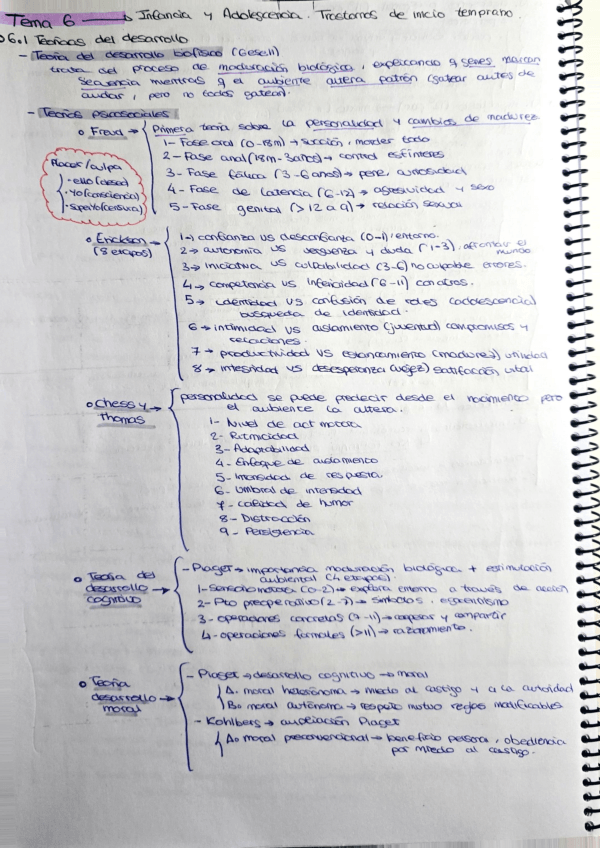 Tema 6 → Infancia y Adolescencia. Trastornos de inicio temprano.
6.1 Teorías del desarrollo
- Teoría del desarrollo biofísico (Gesell)
trata del proceso de maduración biológica, explicando q genes marcan
secuencia mientras q el ambiente altera patrón (gatear antes de
andar, pero no todos gatean).
- Teorías psicosociales
o Freud → Primera teoría sobre la personalidad y cambios de madurez
1- Fase oral (0-18m) → succión, morder todo
2- Fase anal (18m-3años) → control esfínteres
3- Fase fálica (3-6 años) → pene, curiosidad
4- Fase de latencia (6-12) → agresividad y sexo
5- Fase genital (> 12 a q) → relación sexual
Placer/culpa
· ello (deseo)
· Yo (consciencia)
· SuperYo (censura)
o Erickson → (8 etapas)
1 → confianza vs desconfianza (0-1) entorno.
2 → autonomía vs vergüenza y duda (1-3), afrontar el mundo.
3 → iniciativa vs culpabilidad (3-6) no culpable errores.
4 → competencia vs inferioridad (6-11) con otros.
5 → identidad vs confusión de roles (adolescencia)
búsqueda de identidad.
6 → intimidad vs aislamiento (juventud) compromisos y
relaciones.
7 → productividad vs estancamiento (madurez) utilidad
8 → integridad vs desesperanza (vejez) satisfacción vital
o Chess y Thomas → personalidad se puede predecir desde el nacimiento pero
el ambiente la altera.
1- Nivel de act motora
2- Ritmicidad
3- Adaptabilidad
4- Enfoque de aislamiento
5- Intensidad de respuesta
6- Umbral de intensidad
7- calidad de humor
8- Distracción
9- Persistencia
o Teoría del desarrollo cognitivo →
- Piaget → importancia maduración biológica + estimulación
ambiental (4 etapas).
1- Sensoriomotora (0-2) → explora entorno a través de acción
2- Pto preoperativo (2-7) → símbolos, egocentrismo
3- operaciones concretas (7-11) → cooperar y compartir
4- operaciones formales (>11) → razonamiento.
o Teoría desarrollo moral →
- Piaget → desarrollo cognitivo → moral
A. moral heterónoma → miedo al castigo y a la autoridad
B. moral autónoma → respeto mutuo reglas modificables
- Kohlberg → ampliación Piaget
A. moral preconvencional → beneficio persona, obediencia
por miedo al castigo.